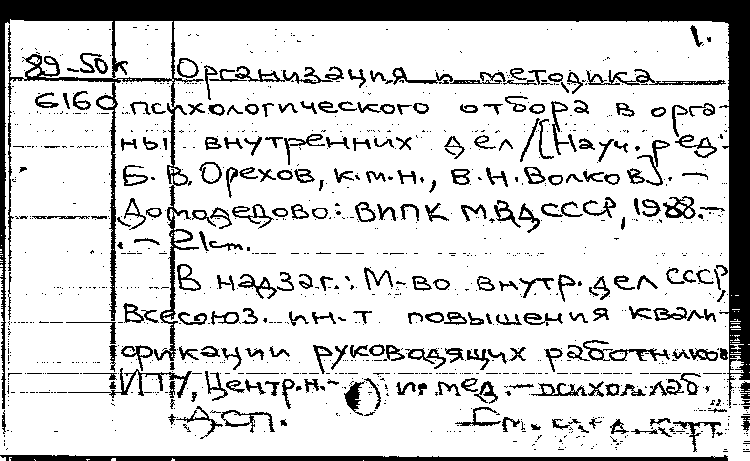 1.
89-50к Организация и методика
6160 психологического отбора в орга-
ны внутренних дел/[Науч. ред.:
Б. В. Орехов, к.м.н., В.Н. Волков]. —
Домодедово: ВИПК МВД СССР, 1988.—
. — 21 см.
В надзаг.: М-во внутр. дел СССР,
Всесоюз. ин-т повышения квали-
фикации руководящих работников
ИТУ, Центр. н.- и. мед.-психол. лаб.
ДСП. См. след. карт.